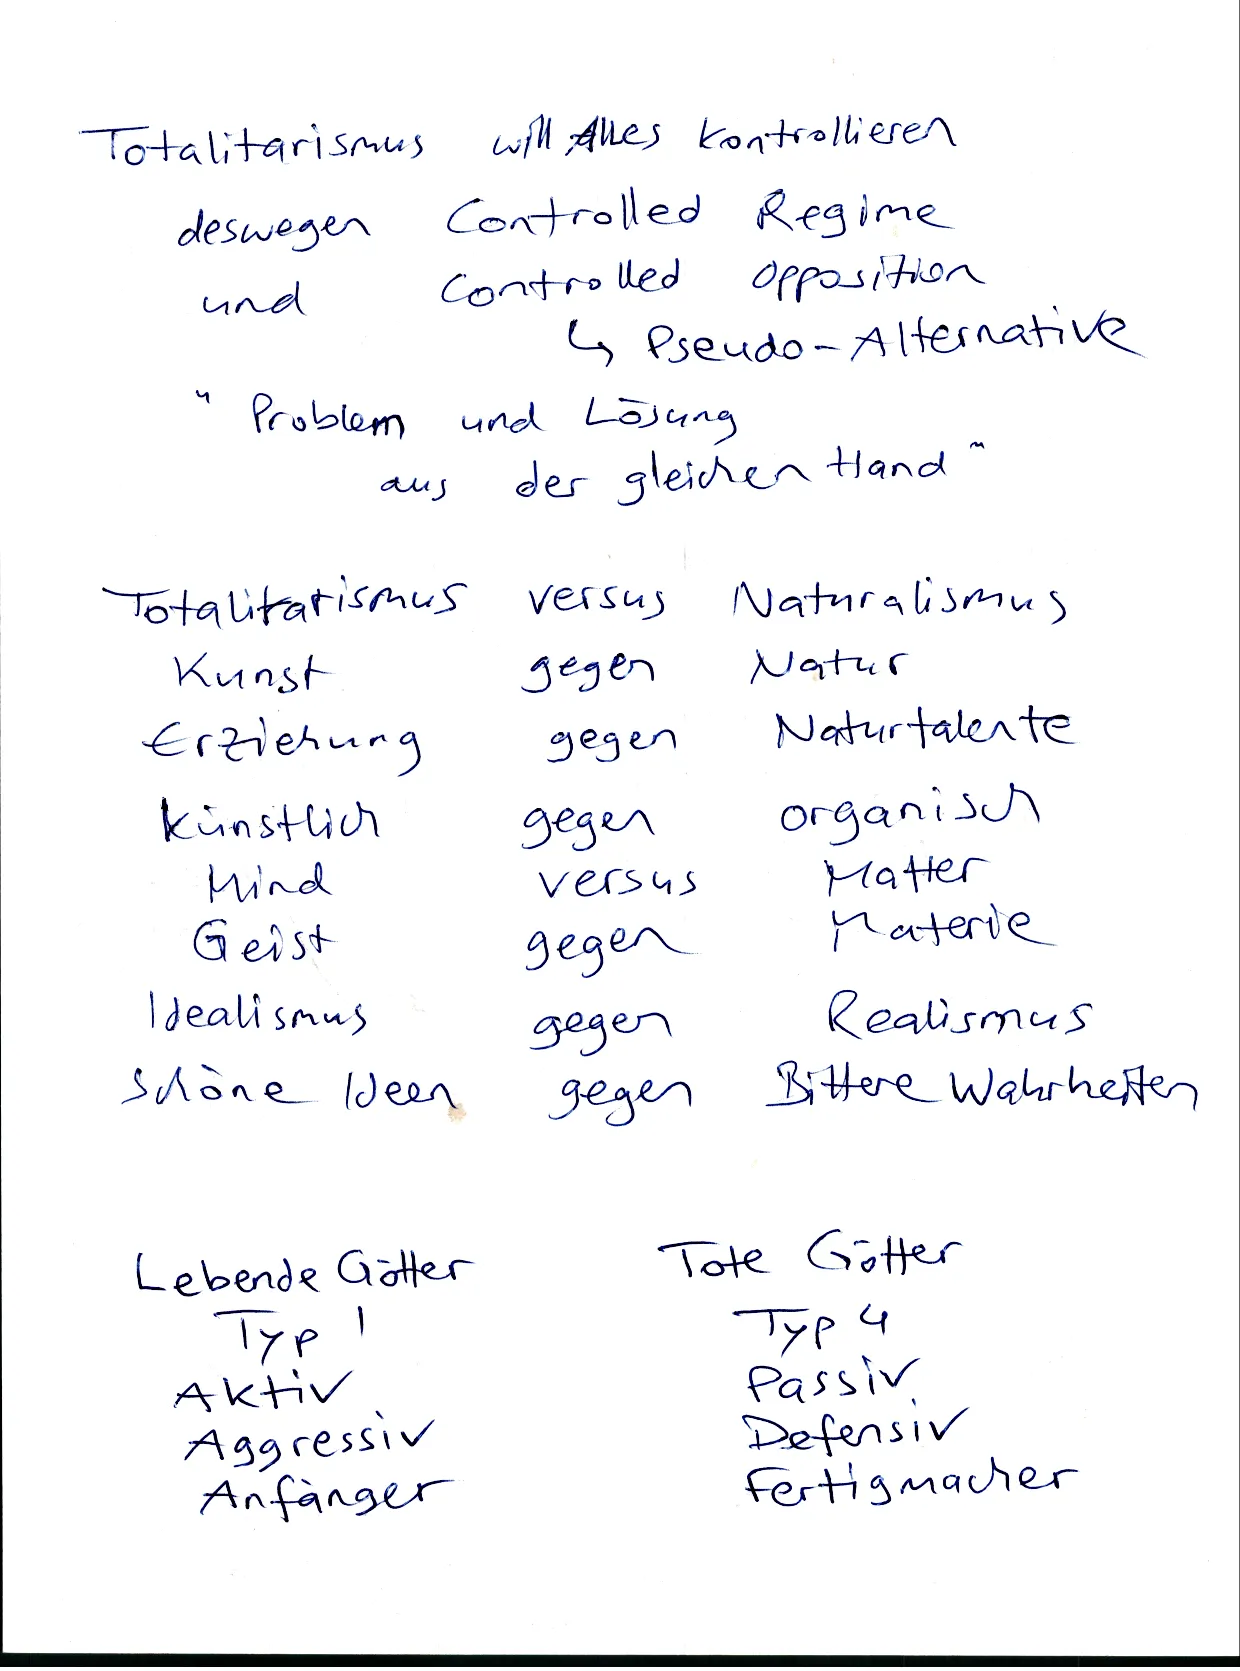 Totalitarismus will Alles kontrollieren
deswegen Controlled Regime
und Controlled Opposition
↳ Pseudo-Alternative
" Problem und Lösung
aus der gleichen Hand "
Totalitarismus versus Naturalismus
Kunst gegen Natur
Erziehung gegen Naturtalente
künstlich gegen organisch
Mind versus Matter
Geist gegen Materie
Idealismus gegen Realismus
Schöne Ideen gegen Bittere Wahrheiten
Lebende Götter Tote Götter
Typ 1 Typ 4
Aktiv Passiv
Aggressiv Defensiv
Anfänger Fertigmacher